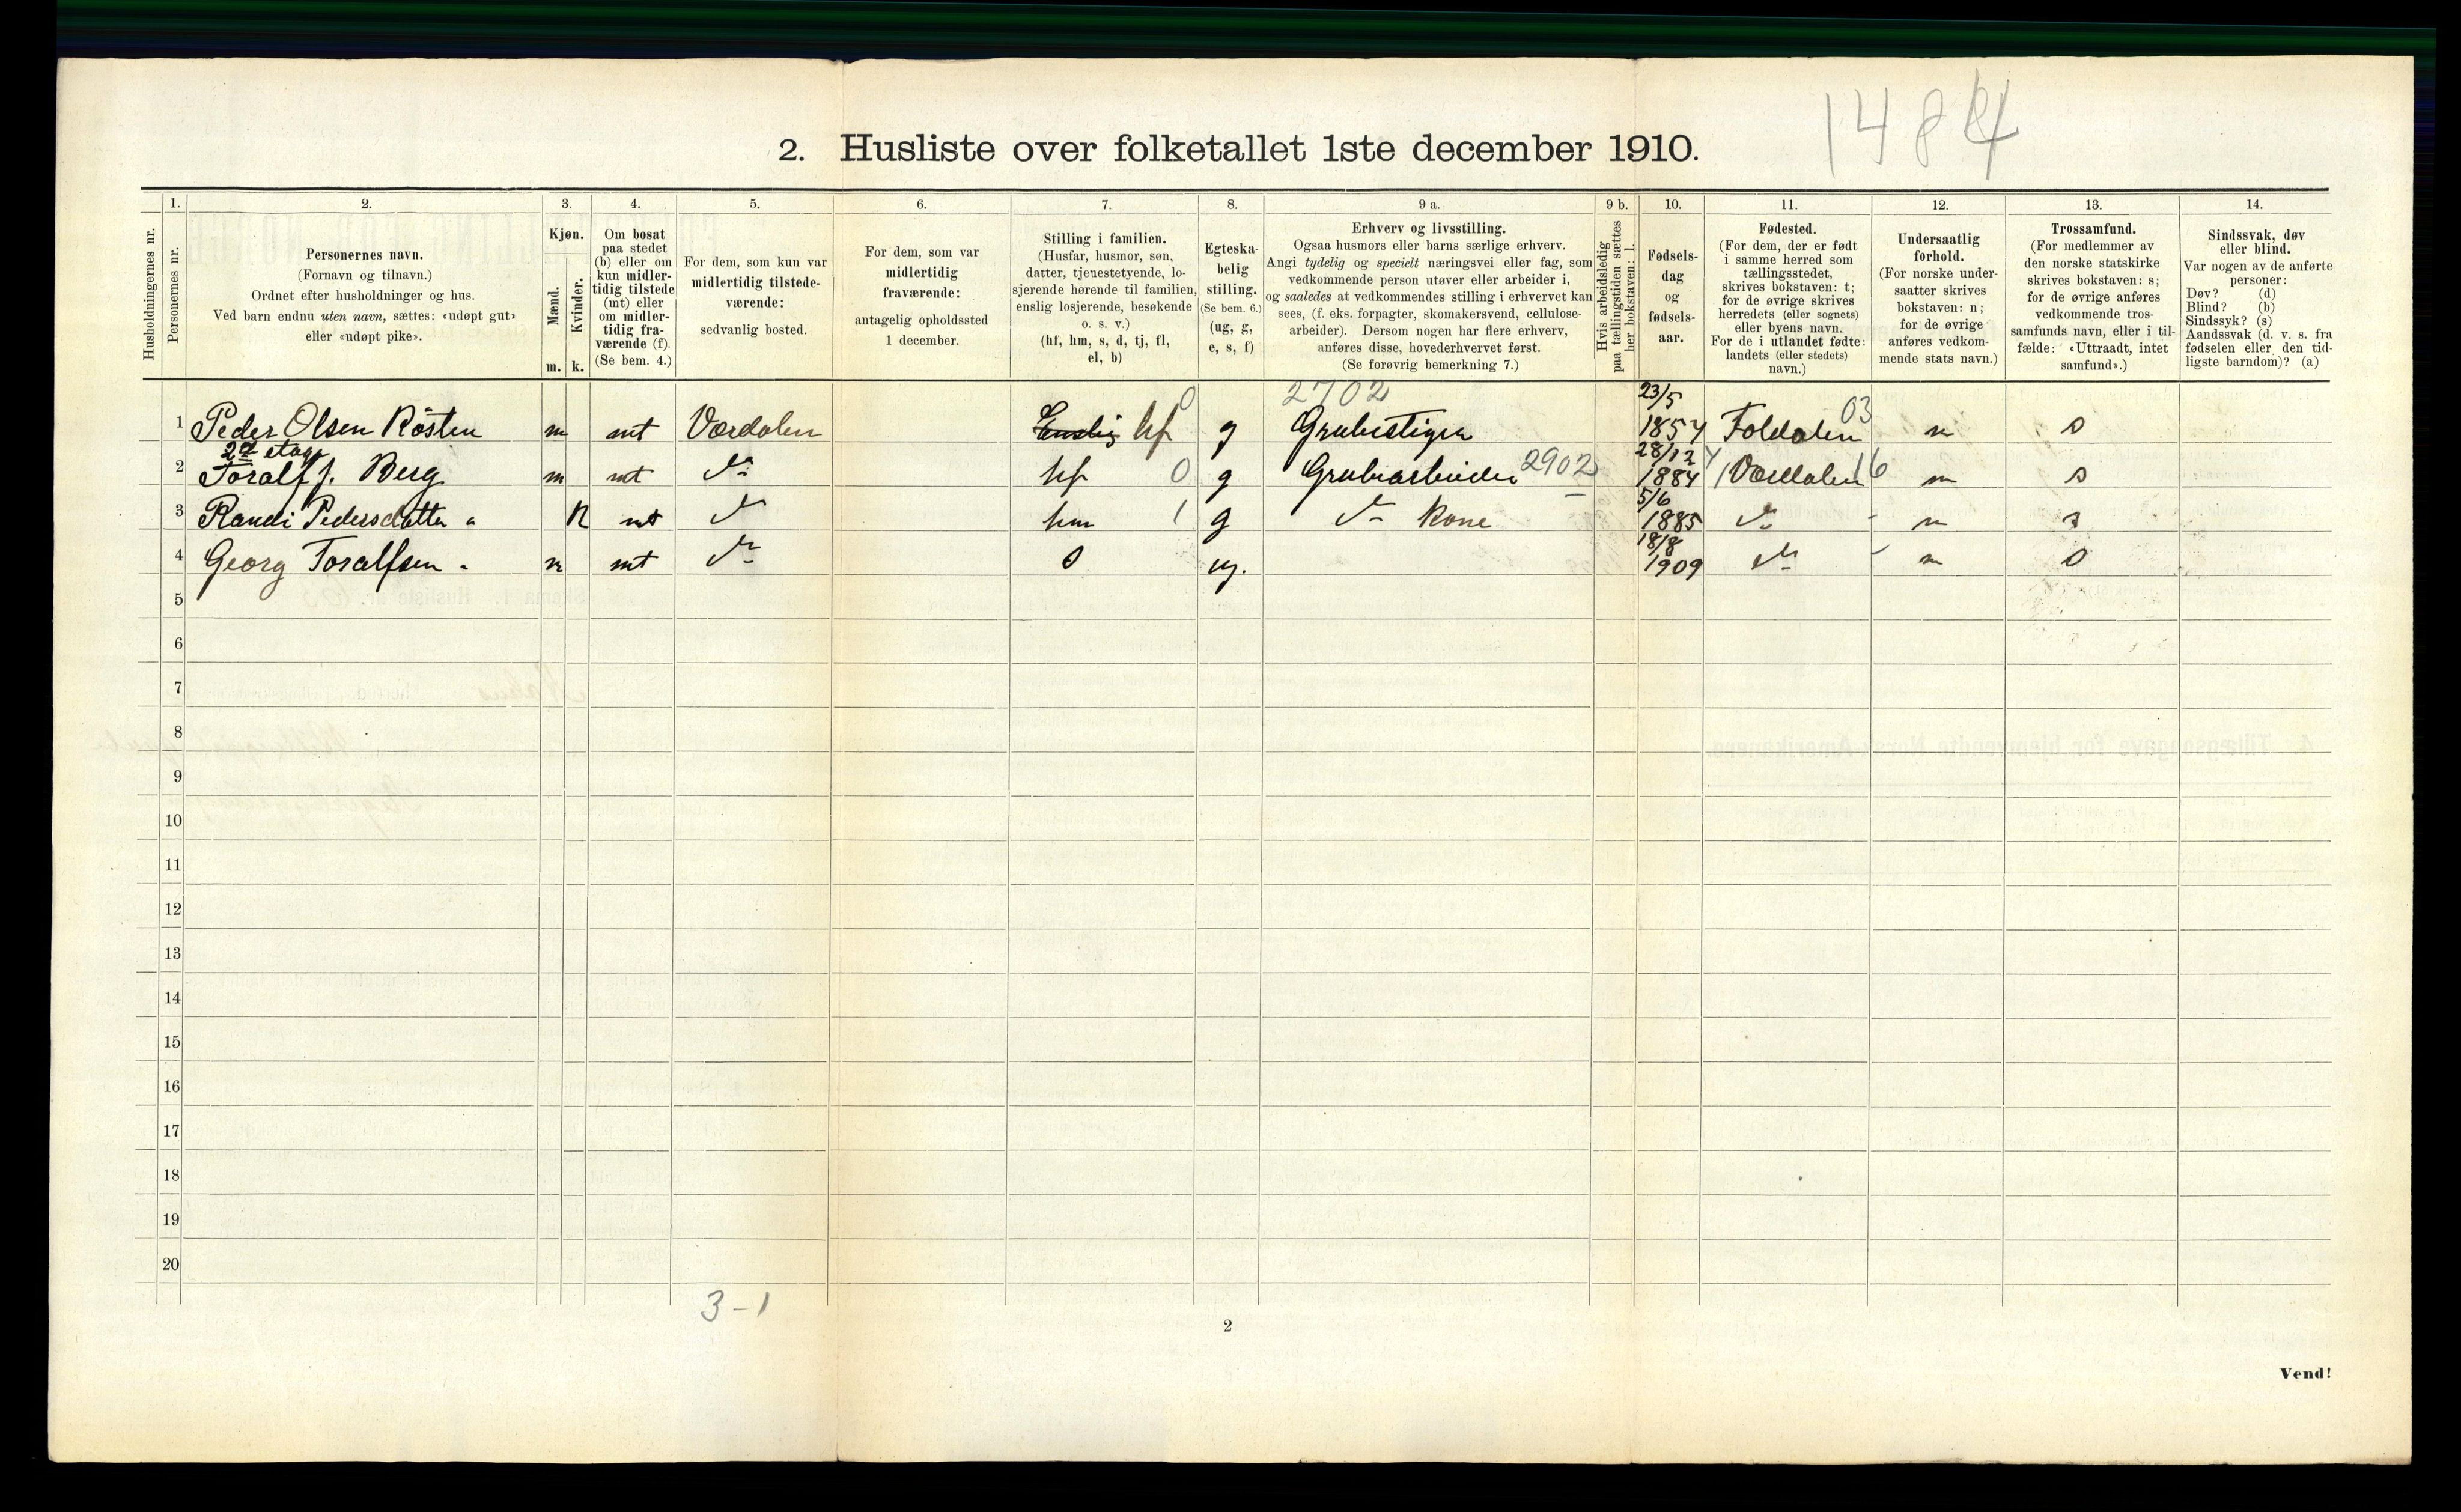 1484
2. Husliste over folketallet 1ste december 1910.
Husholdningernes nr.
1.
Personernes nr.
2.
Personernes navn.
(Fornavn og tilnavn.)
Ordnet efter husholdninger og hus.
Ved barn endnu uten navn, sættes: «udøpt gut»
eller «udøpt pike».
3.
Kjøn.
Mænd.
Kvinder.
m. k.
4.
Om bosat
paa stedet
(b) eller om
kun midler-
tidig tilstede
(mt) eller
om midler-
tidig fra-
værende (f).
(Se bem. 4.)
5.
For dem, som kun var
midlertidig tilstede-
værende:
sedvanlig bosted.
6.
For dem, som var
midlertidig
fraværende:
antagelig opholdssted
1 december.
7.
Stilling i familien.
(Husfar, husmor, søn,
datter, tjenestetyende, lo-
sjerende hørende til familien,
enslig losjerende, besøkende
o. s. v.)
(hf, hm, s, d, tj, fl,
el, b)
8.
Egteska-
belig
stilling.
(Se bem. 6.)
(ug, g,
e, s, f)
9 a.
Erhverv og livsstilling.
Ogsaa husmors eller barns særlige erhverv.
Angi tydelig og specielt næringsvei eller fag, som
vedkommende person utøver eller arbeider i,
og saaledes at vedkommendes stilling i erhvervet kan
sees, (f. eks. forpagter, skomakersvend, cellulose-
arbeider). Dersom nogen har flere erhverv,
anføres disse, hovederhvervet først.
(Se forøvrig bemerkning 7.)
9 b.
Hvis arbeidsledig
paa tællingstiden sættes
her bokstaven: l.
10.
Fødsels-
dag
og
fødsels-
aar.
11.
Fødested.
(For dem, der er født
i samme herred som
tællingsstedet,
skrives bokstaven: t;
for de øvrige skrives
herredets (eller sognets)
eller byens navn.
For de i utlandet fødte:
landets (eller stedets)
navn.)
12.
Undersaatlig
forhold.
(For norske under-
saatter skrives
bokstaven: n;
for de øvrige
anføres vedkom-
mende stats navn.)
13.
Trossamfund.
(For medlemmer av
den norske statskirke
skrives bokstaven: s;
for de øvrige anføres
vedkommende tros-
samfunds navn, eller i til-
fælde: «Uttraadt, intet
samfund».)
14.
Sindssvak, døv
eller blind.
Var nogen av de anførte
personer:
Døv? (d)
Blind? (b)
Sindssyk? (s)
Aandssvak (d. v. s. fra
fødselen eller den tid-
ligste barndom)? (a)
0 2702 23/5 03
1 Peder Olsen Rösten m mt Værdalen Enslig hf g Grubestiger 1857 Foldalen n s
2den etage 28/12
2 Toralf J. Berg m mt do hf 0 g Grubearbeider 2902 1884 Værdalen 16 n s
5/6
3 Randi Pedersdatter " k mt do hm 1 g do kone 1885 do n s
18/8
4 Georg Toralfsen " m mt do s ug. 1909 do n s
5
6
7
8
9
10
11
12
13
14
15
16
17
18
19
20
3-1
2
Vend!